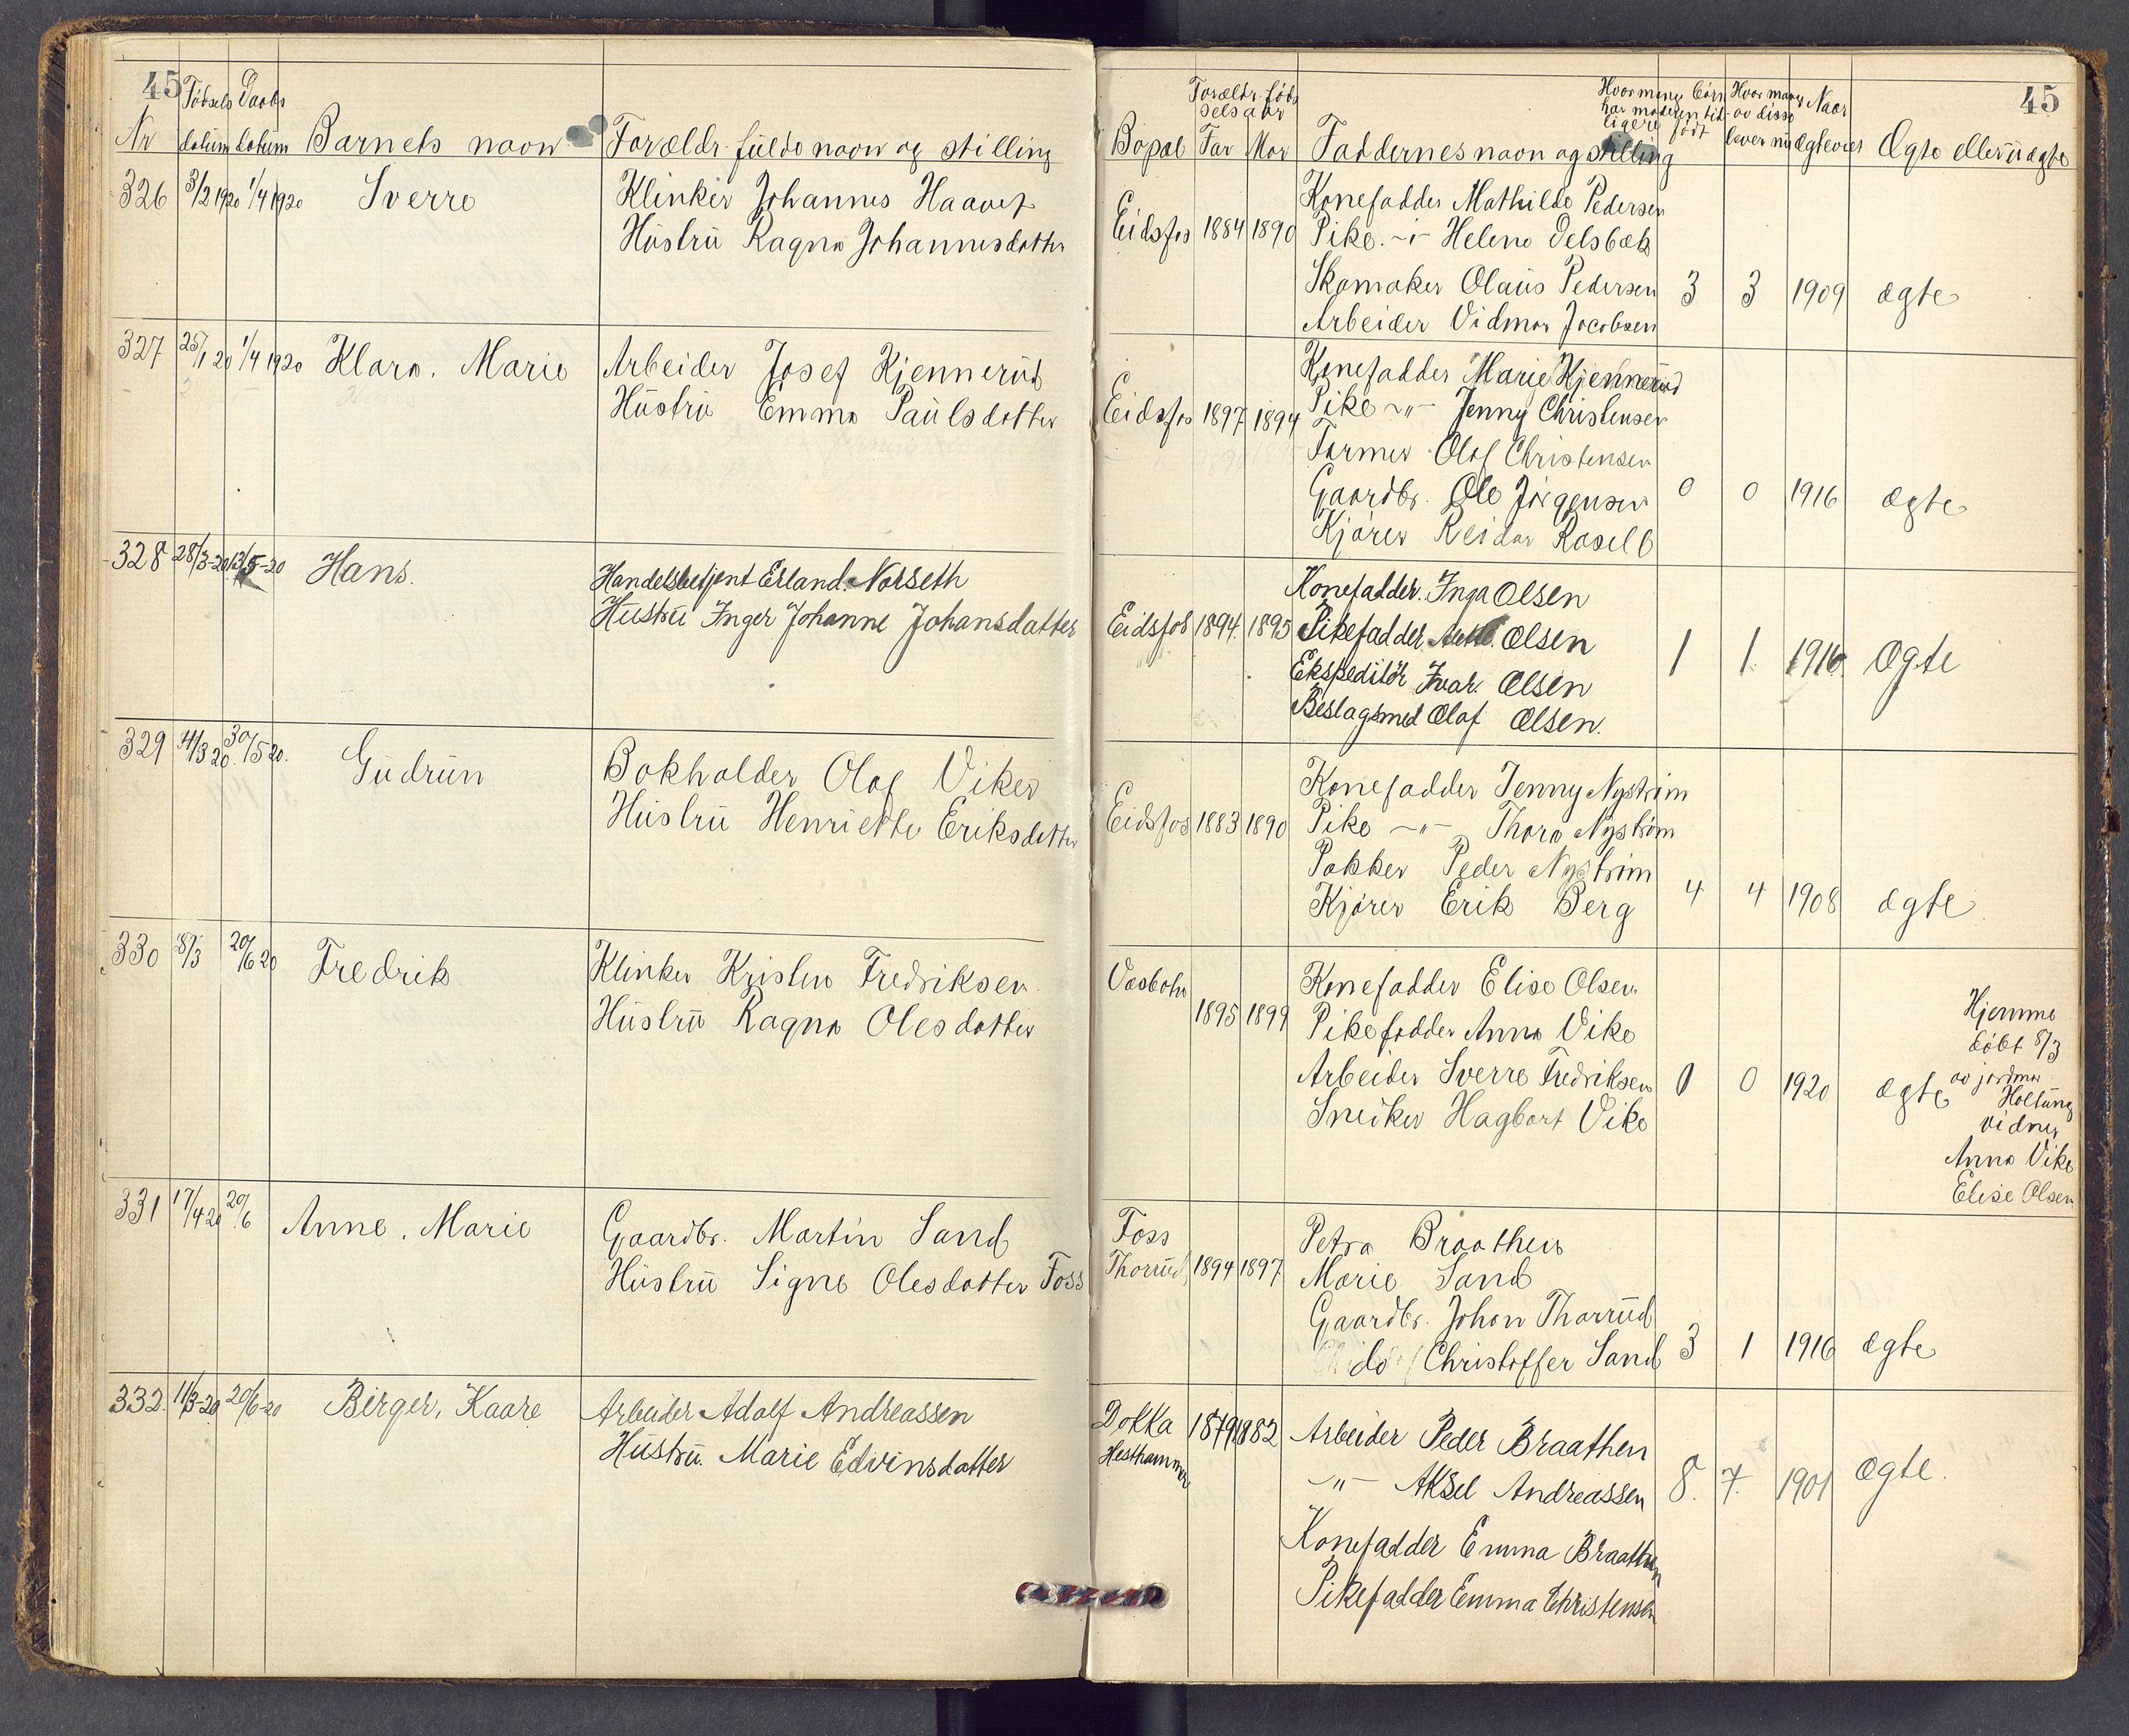 45
Födsels Daabs
Nr datum datum Barnets navn Forældr. fulde navn og stilling
326 3/2 1920 1/4 1920 Sverre Klinker Johannes Haavet
Hustru Ragna Johannesdatter
327 25/1 20 1/4 1920 Klara. Marie Arbeider Josef Kjennerud
Hustru Emma Paulsdatter
328 28/3-20 13/5-20 Hans. Handelsbetjent Erland. Norseth
Hustru Inger Johanne Johansdatter
329 4/3 20. 30/5 20. Gudrun Bokholder Olaf Viker
Hustru Henriette Eriksdatter
330 8/3 20/6 20 Fredrik Klinker Krister Fredriksen
Hustru Ragna Olesdatter
331 17/4 20 20/6 Anne. Marie Gaardbr. Martin Sand
Hustru Signe Olesdatter Foss
332. 11/3-20 20/6-20 Birger, Kaare Arbeider Adolf Andreassen
Hustru. Marie Edvinsdatter
45
Forældr. föd selsaar
Hvor mange börn har moderen tidligere födt
Hvor mange av disse lever nu
Naar ægteviet
Bopæl Far Mor Faddernes navn og stilling Ægte eller uægte
Konefadder Mathilde Pedersen
Eidsfos 1884 1890 Pike. -"- Helene Delsbæk
Skomaker Olaus Pedersen 3 3 1909 ægte
Arbeider Vidmar Jacobsen
Konefadder Marie Kjennerud
Eidsfos 1897 1894 Pike -"- Jenny Christensen
Former Olaf Christensen
Gaardbr. Ole Jörgensen 0 0 1916 ægte
Kjörer Reidar
Konefadder. Inga Olsen
Eidsfos 1894. 1895 Pikefadder Olsen
Ekspeditör Ivar. Olsen 1 1. 1916. Ægte
Beslagsmed Olaf Olsen.
Konefadder Jenny Nyström
Eidsfos 1883 1890 Pike -"- Thora Nyström
Pakker Peder Nyström
Kjörer Erik Berg 4 4 1908 ægte
Vasbotn Konefadder Elise Olsen
1895 1899 Pikefadder Anna Vike
Arbeider Sverre Fredriksen 0 0 1920 ægte
Sneiker Hagbart Vike
Hjemme
döbt 8/3
av jordmor
Holtung
vidner
Anna Vike
Elise Olsen
Foss Petra Braathen
Thorrud 1894 1897 Marie Sand
Gaardbr. Johan Thorrud
do Christoffer Sand 3 1 1916 ægte
Dokka 1879 1882 Arbeider Peder Braathen
Hesthammer -"- Aksel Andreassen 8. 7. 1901 Ægte.
Konefadder Emma Braathen
Pikefadder Emma Christensen